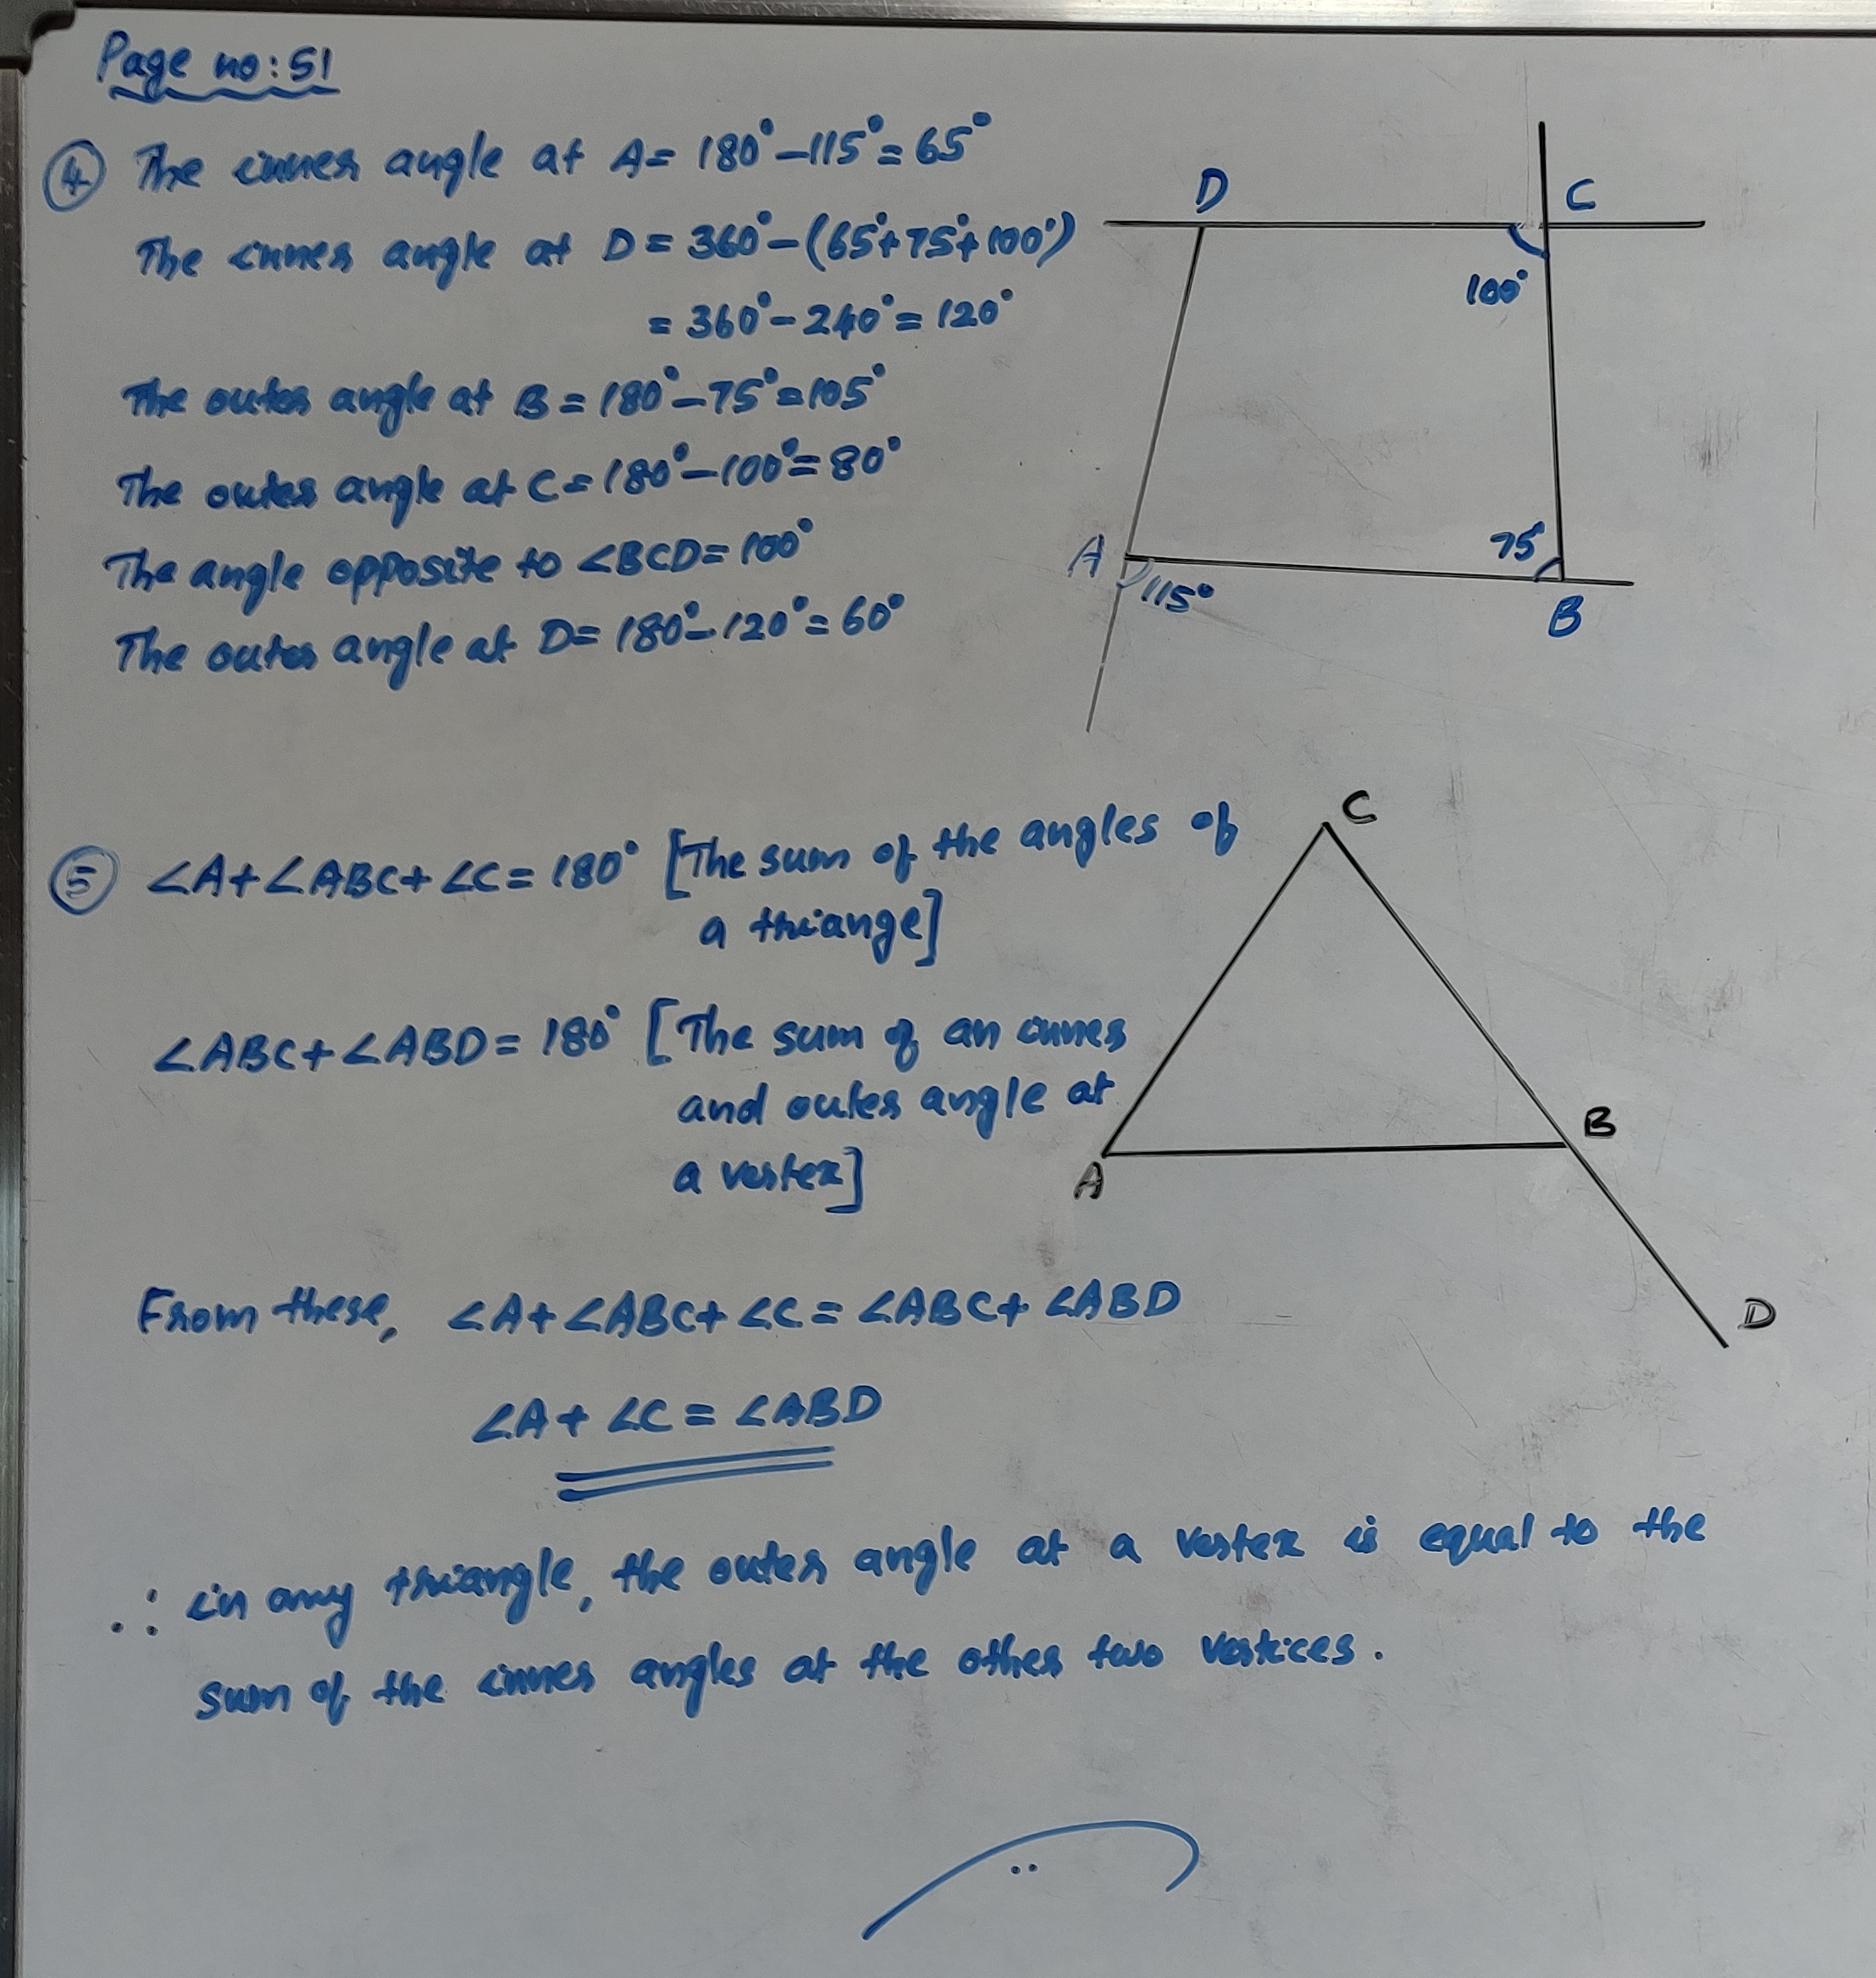 Page no: 51
④ The inner angle at A = 180° - 115° = 65°
The inner angle at D = 360° - (65° + 75° + 100°)
= 360° - 240° = 120°
The outer angle at B = 180° - 75° = 105°
The outer angle at C = 180° - 100° = 80°
The angle opposite to ∠BCD = 100°
The outer angle at D = 180° - 120° = 60°
D
C
100°
A
115°
75°
B
⑤ ∠A + ∠ABC + ∠C = 180° [The sum of the angles of
a triange]
∠ABC + ∠ABD = 180° [The sum of an inner
and outer angle at
a vertex]
C
A
B
D
From these, ∠A + ∠ABC + ∠C = ∠ABC + ∠ABD
∠A + ∠C = ∠ABD
∴ in any triangle, the outer angle at a vertex is equal to the
sum of the inner angles at the other two vertices.